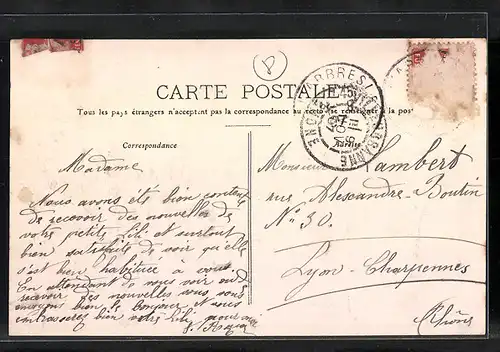 8
CARTE POSTALE
Tous les pays étrangers n'acceptent pas la correspondance au recto se renseigner à la poste
Correspondance
Adresse
Madame
Nous avons étés bien content
de recevoir des nouvelles de
votre petite Lili et surtout
bien satisfaits de voir qu'elle
s'est bien habituée a vous.
En attendant de vous voir ou
recevoir des nouvelles nous vous
envoyons bien le bonjour et nous
embrasserez bien votre Lili pour nous
Monsieur Lambert
rue Alexandre-Boutin
No 30.
Lyon-Charpennes
Rhône